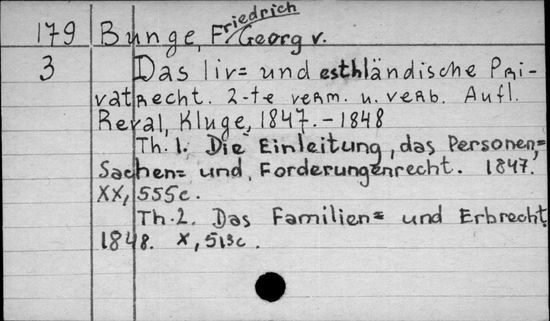 179 Bunge, Friedrich Georg v.
3 Das liv= und esthländische Pri-
vatrecht. 2-te verm. u. verb. Aufl.
Reval, Kluge, 1847. - 1848
Th. 1. Die Einleitung, das Personen,=
Sachen= und Forderungenrecht. 1847.
XX, 555c.
Th. 2. Das Familien= und Erbrecht
1848. X, 513c.